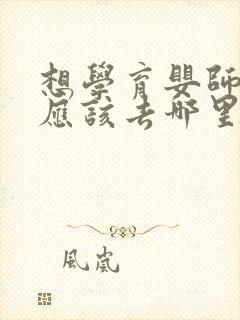 想學育嬰師
應該去哪里
風嵐